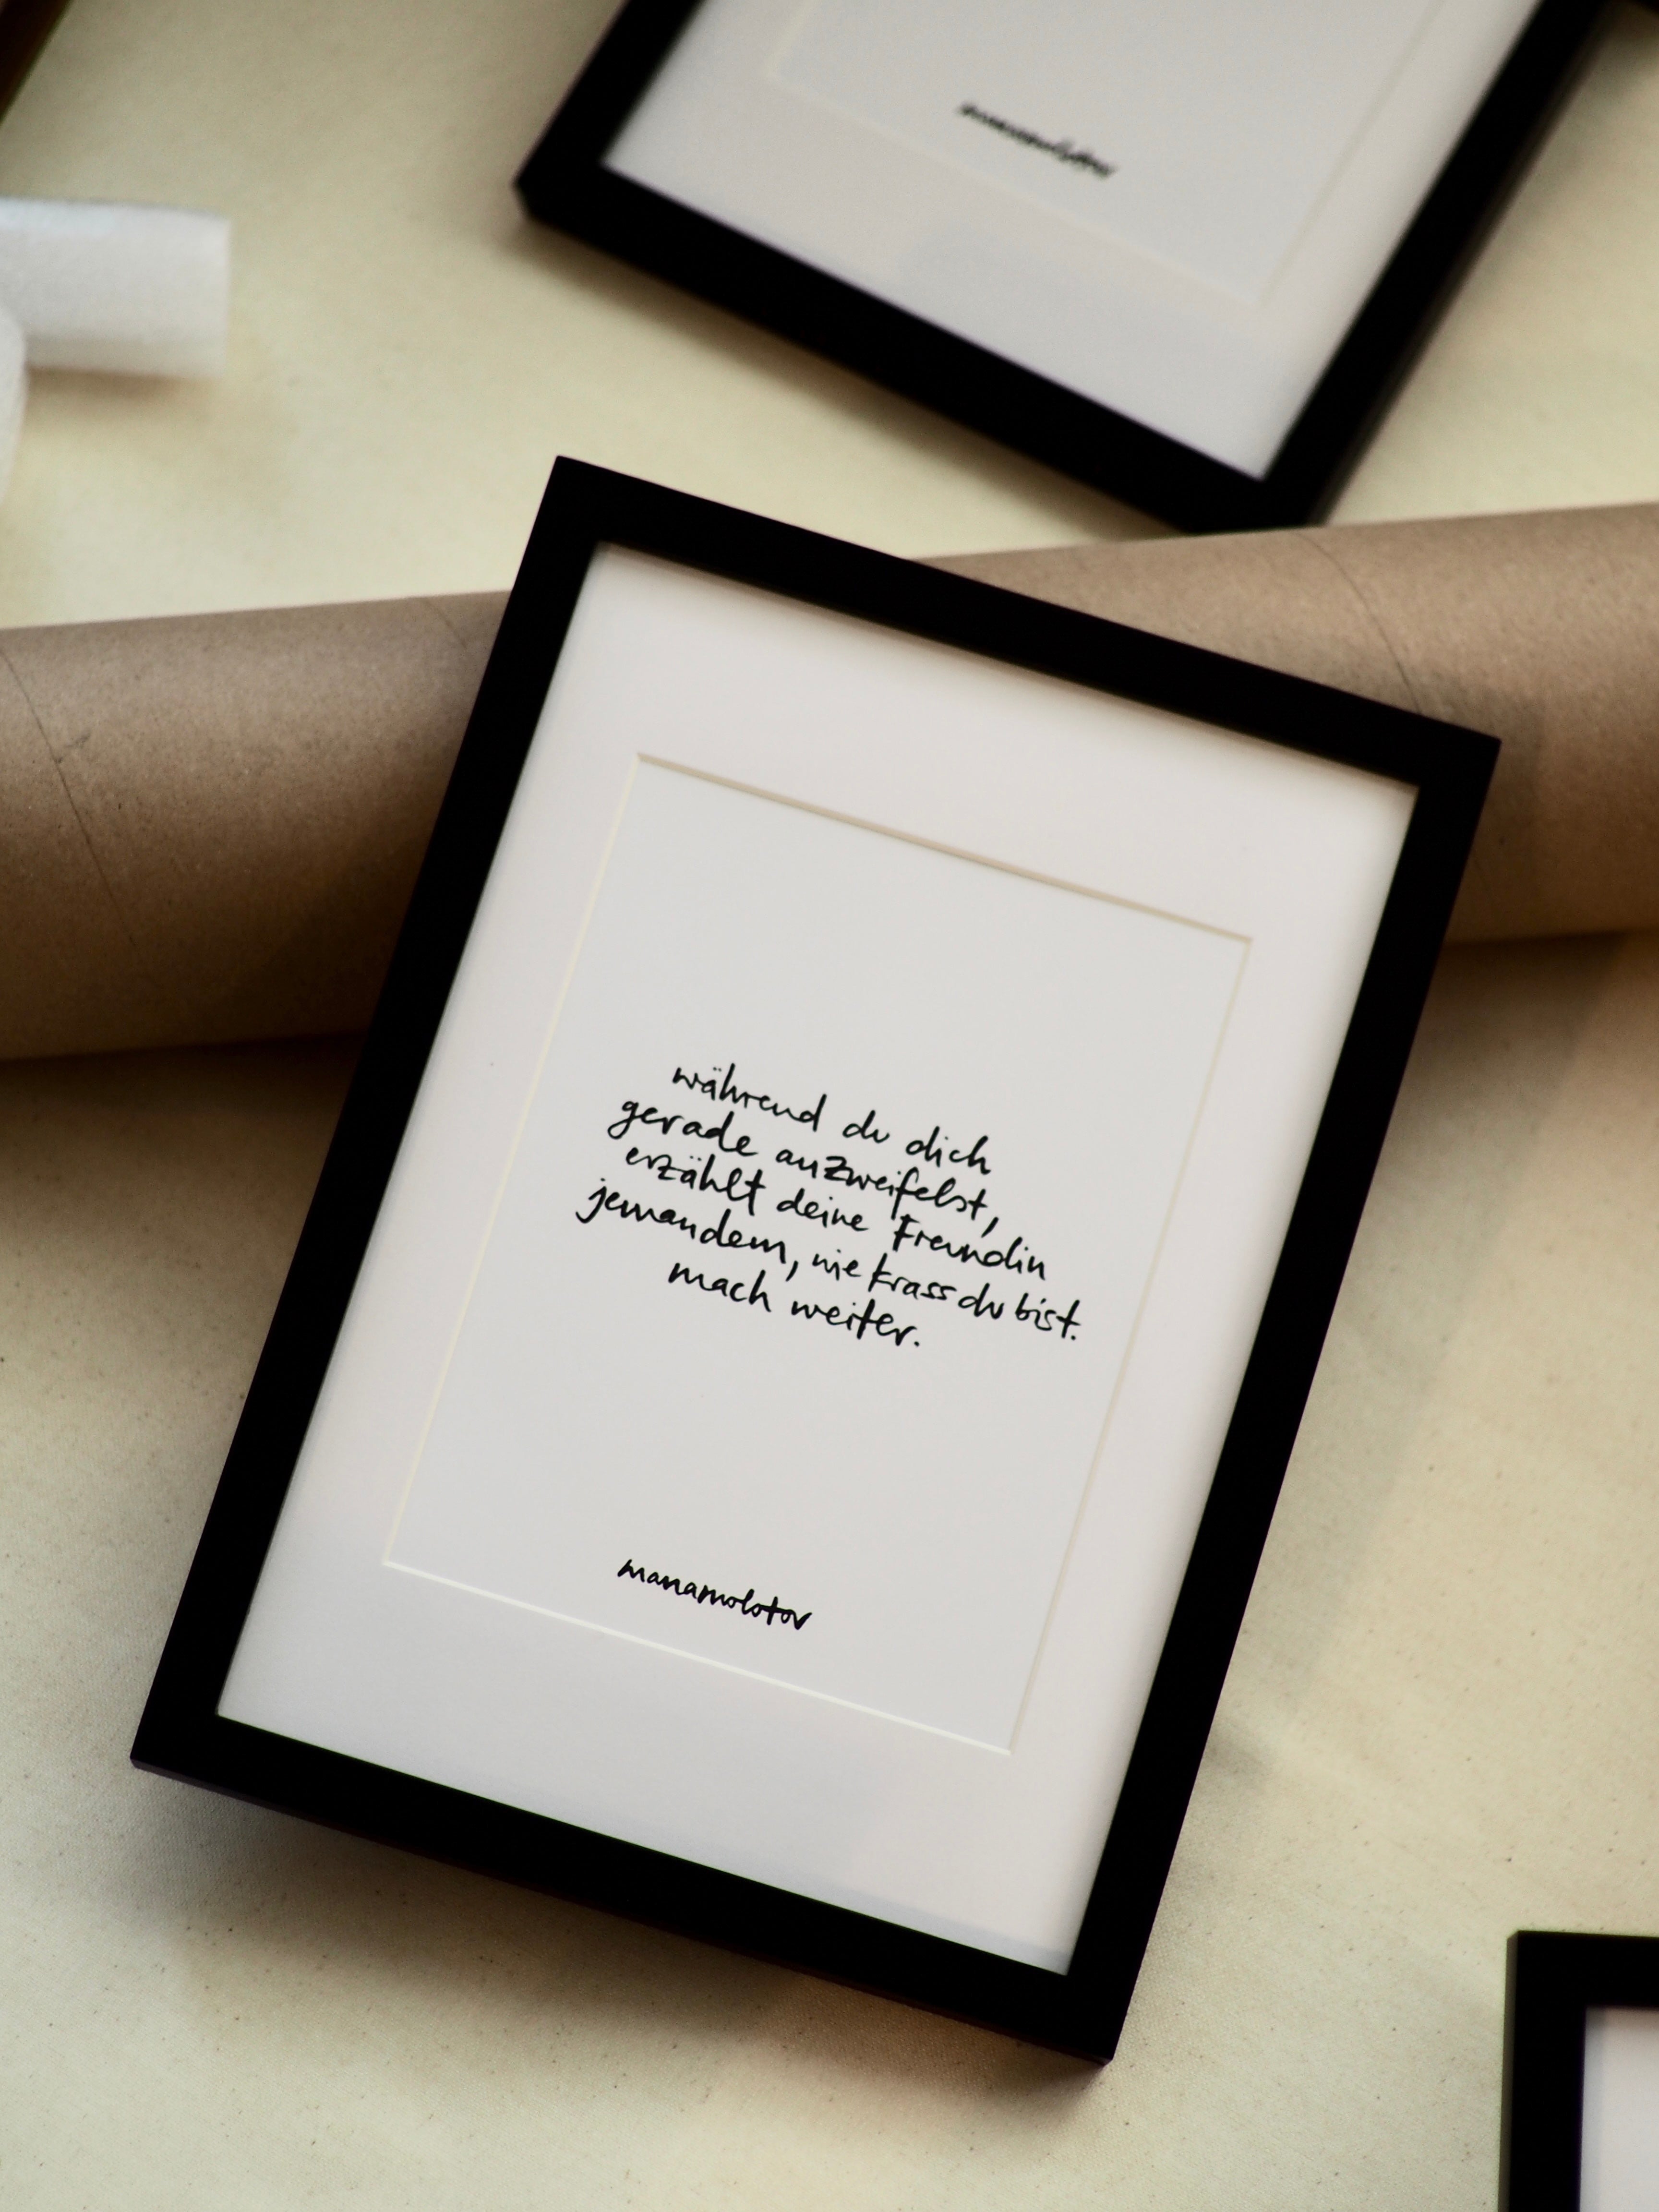 manamolotov
während du dich
gerade anzweifelst,
erzählt deine Freundin
jemandem, wie krass du bist.
mach weiter.
manamolotov